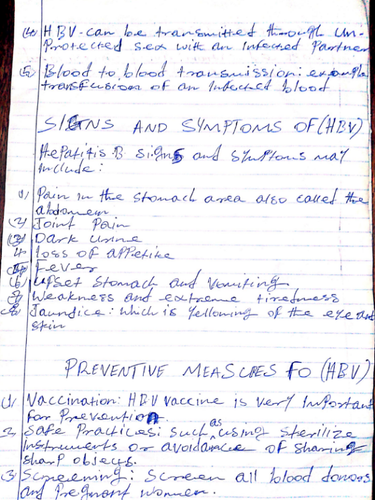 (4) HBV- can be transmitted through Un-
Protected sex with an Infected Partner
(5) Blood to blood transmission: example
transfusion of an Infected blood
SIGNS AND SYMPTOMS OF (HBV)
Hepatitis B signs and symptoms may
Include:
1) Pain in the stomach area also called the
abdomen
(2) Joint Pain
(3) Dark Urine
4 loss of appetite
Fever
(6) Upset Stomach and Vomiting
7) Weakness and extreme tiredness
8) Jaundice: which is yellowing of the eye and
skin
PREVENTIVE MEASURES FO (HBV)
(1) Vaccination: HBV vaccine is very Important
for Prevention
2) Safe Practices: such as using sterilize
Instruments or avoidance of Sharing
sharp objects.
(3) Screening: Screen all blood donors
and Pregnant women.